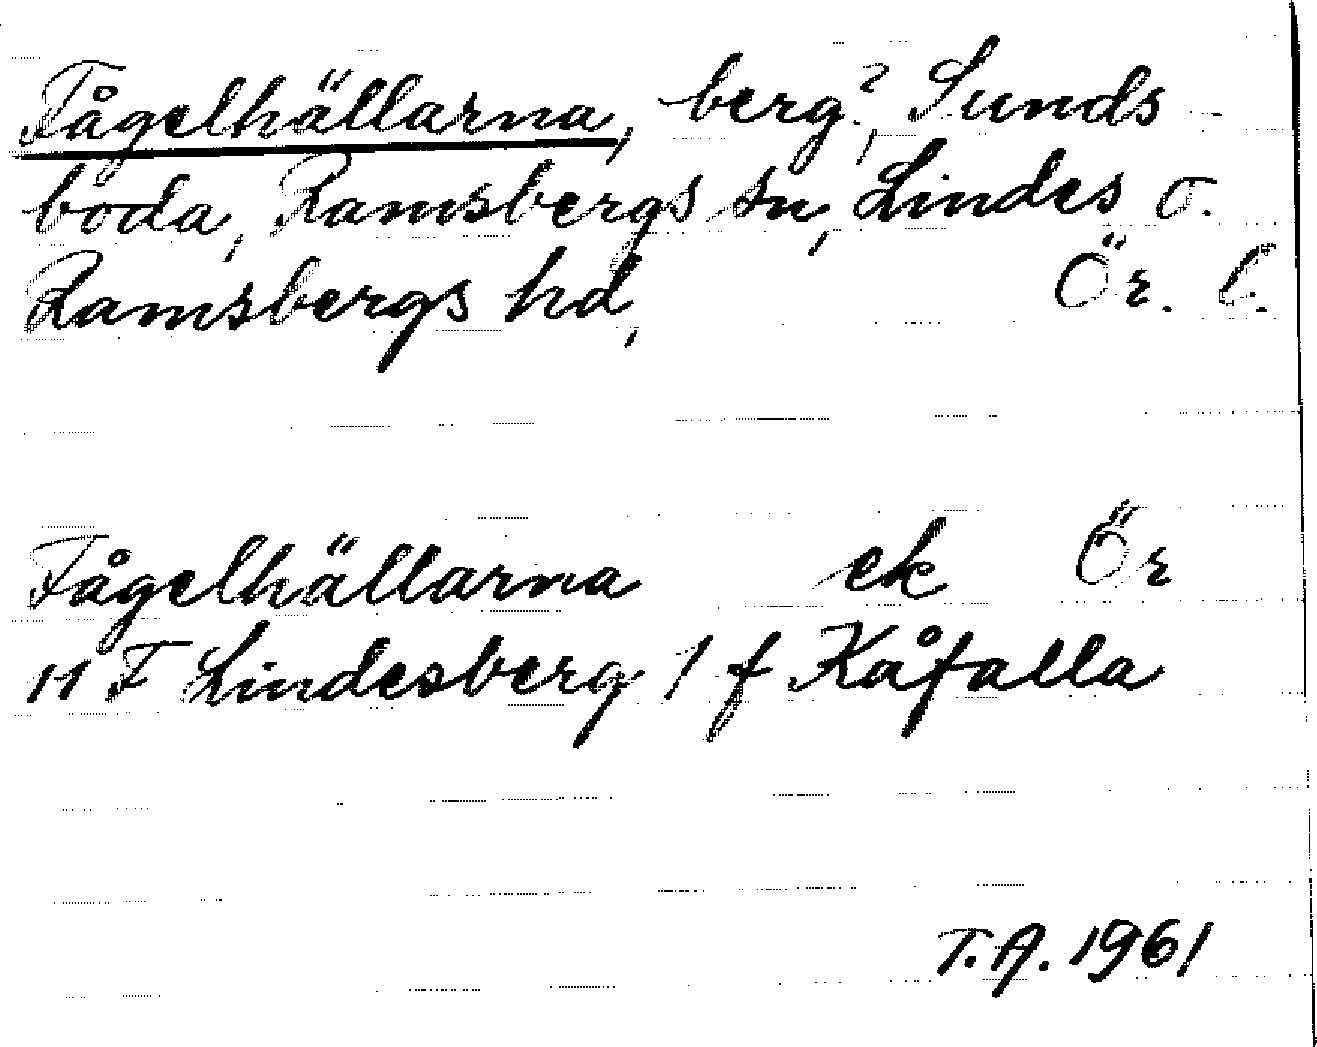 Fågelhällarna, berg?, Sunds-
boda, Ramsbergs sn, Lindes o.
Ramsbergs hd, Ör. l.
Fågelhällarna ek Ör
11 F Lindesberg 1 f Kåfalla
T.A. 1961